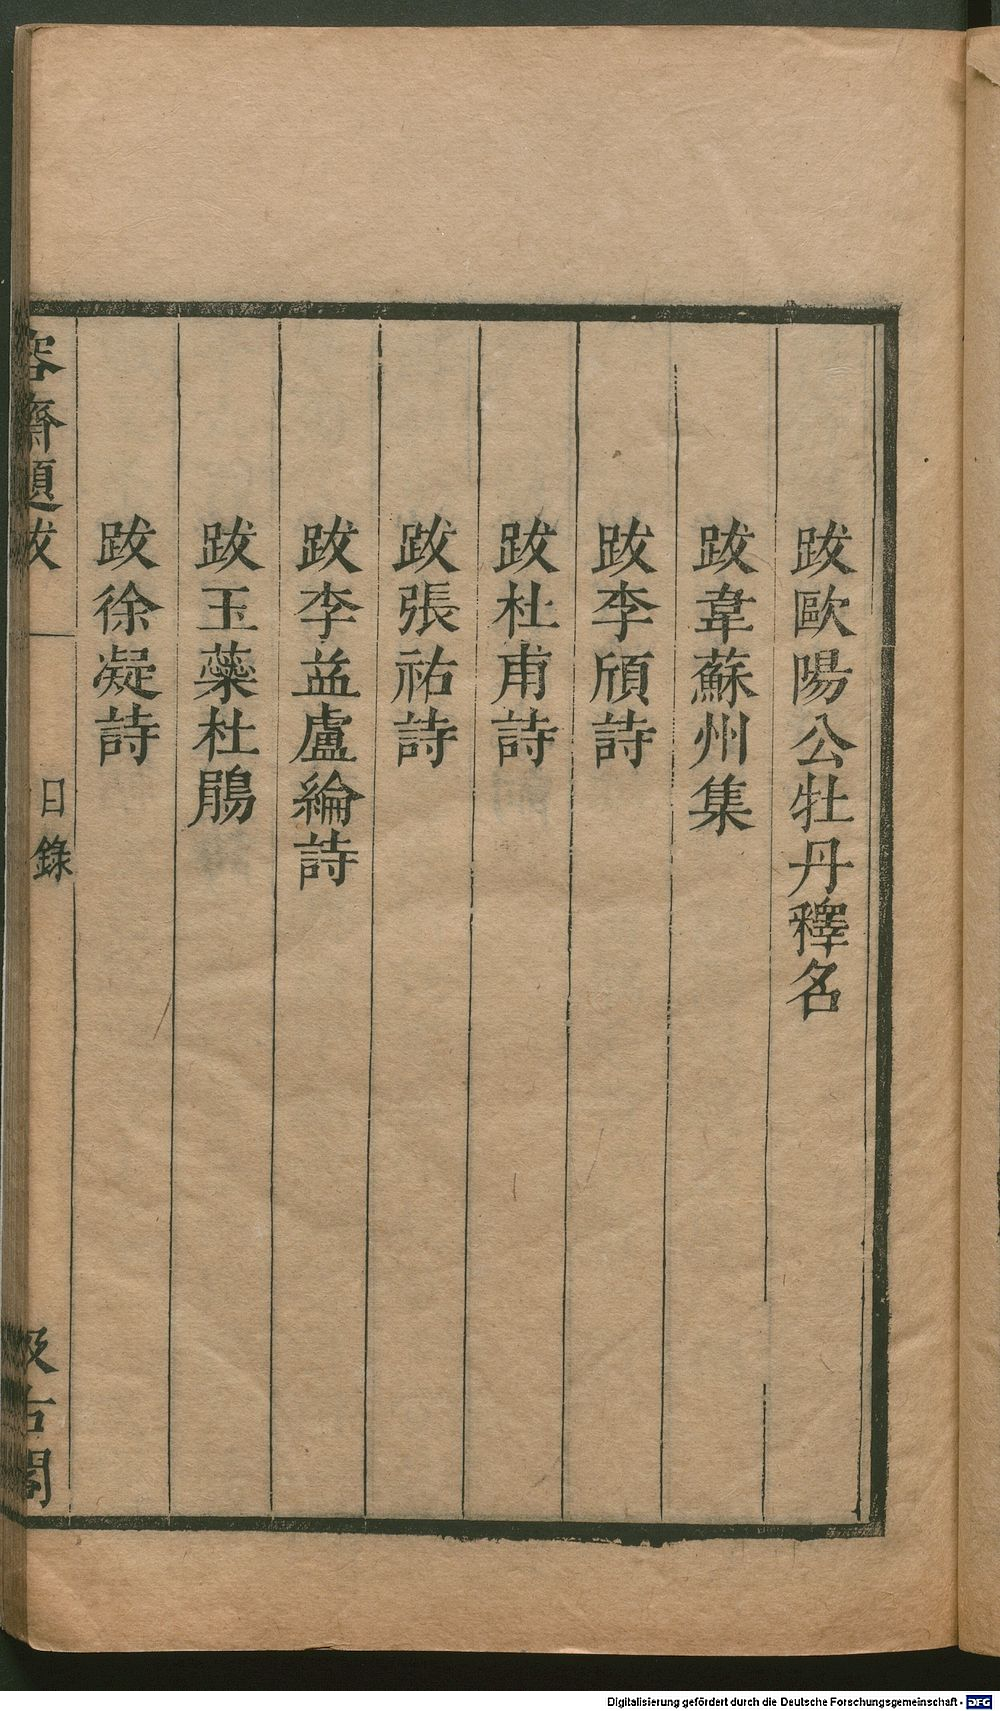 跋歐陽公牡丹釋名
跋韋蘇州集
跋李頎詩
跋杜甫詩
跋張祐詩
跋李益盧綸詩
跋玉蘂杜鵑
跋徐凝詩
容齋題跋
目錄
汲古閣
Digitalisierung gefördert durch die Deutsche Forschungsgemeinschaft - DFG